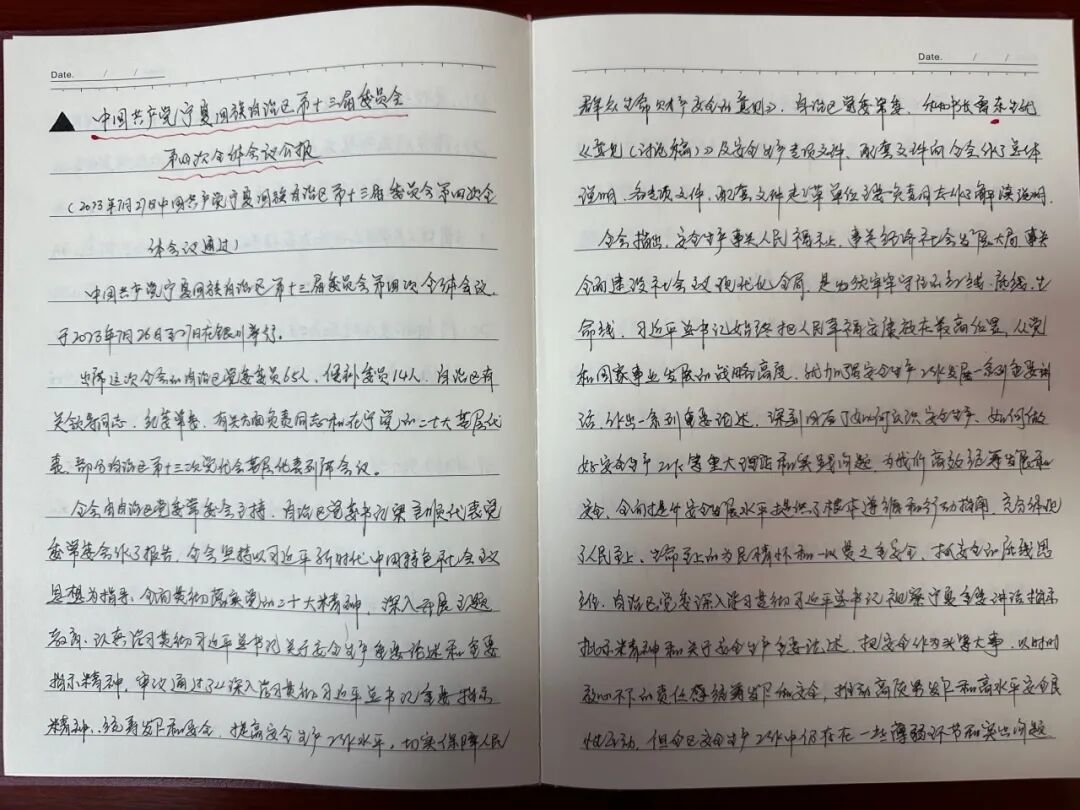 Date. / /
中国共产党宁夏回族自治区第十三届委员会
第四次全体会议公报
（2023年7月27日中国共产党宁夏回族自治区第十三届委员会第四次全
体会议通过）
中国共产党宁夏回族自治区第十三届委员会第四次全体会议，
于2023年7月26日至27日在银川举行。
出席这次全会的自治区党委委员65人，候补委员14人。自治区有
关领导同志，纪委常委，有关方面负责同志和在宁党的二十大基层代
表、部分自治区第十三次党代会基层代表列席会议。
全会由自治区党委常委会主持。自治区党委书记梁言顺代表党
委常委会作了报告。全会坚持以习近平新时代中国特色社会主义
思想为指导，全面贯彻落实党的二十大精神，深入开展主题
教育，认真学习贯彻习近平总书记关于安全生产重要论述和重要
指示精神，审议通过了《深入学习贯彻习近平总书记重要指示
精神，统筹发展和安全，提高安全生产工作水平，切实保障人民
Date. / /
群众生命财产安全的意见》。自治区党委常委、秘书长雷东生就
《意见（讨论稿）》及安全生产专项文件、配套文件向全会作了总体
说明，各专项文件、配套文件起草单位主要负责同志作了解读说明。
全会指出，安全生产事关人民福祉，事关经济社会发展大局，事关
全面建设社会主义现代化全局，是必须牢牢守住的红线、底线、生
命线。习近平总书记始终把人民幸福安康放在最高位置，从党
和国家事业发展的战略高度，就加强安全生产工作发展一系列重要讲
话、作出一系列重要论述，深刻回答了如何认识安全生产、如何做
好安全生产工作等重大理论和实践问题，为我们高效统筹发展和
安全、全面提升安全发展水平提供了根本遵循和行动指南，充分体现
了人民至上、生命至上的为民情怀和一以贯之重安全、抓安全的底线思
维。自治区党委深入学习贯彻习近平总书记视察宁夏重要讲话指示
批示精神和关于安全生产重要论述，把安全作为头等大事，以时时
放心不下的责任感统筹发展和安全，推动高质量发展和高水平安全良
性互动，但全区安全生产工作中仍存在一些薄弱环节和突出问题